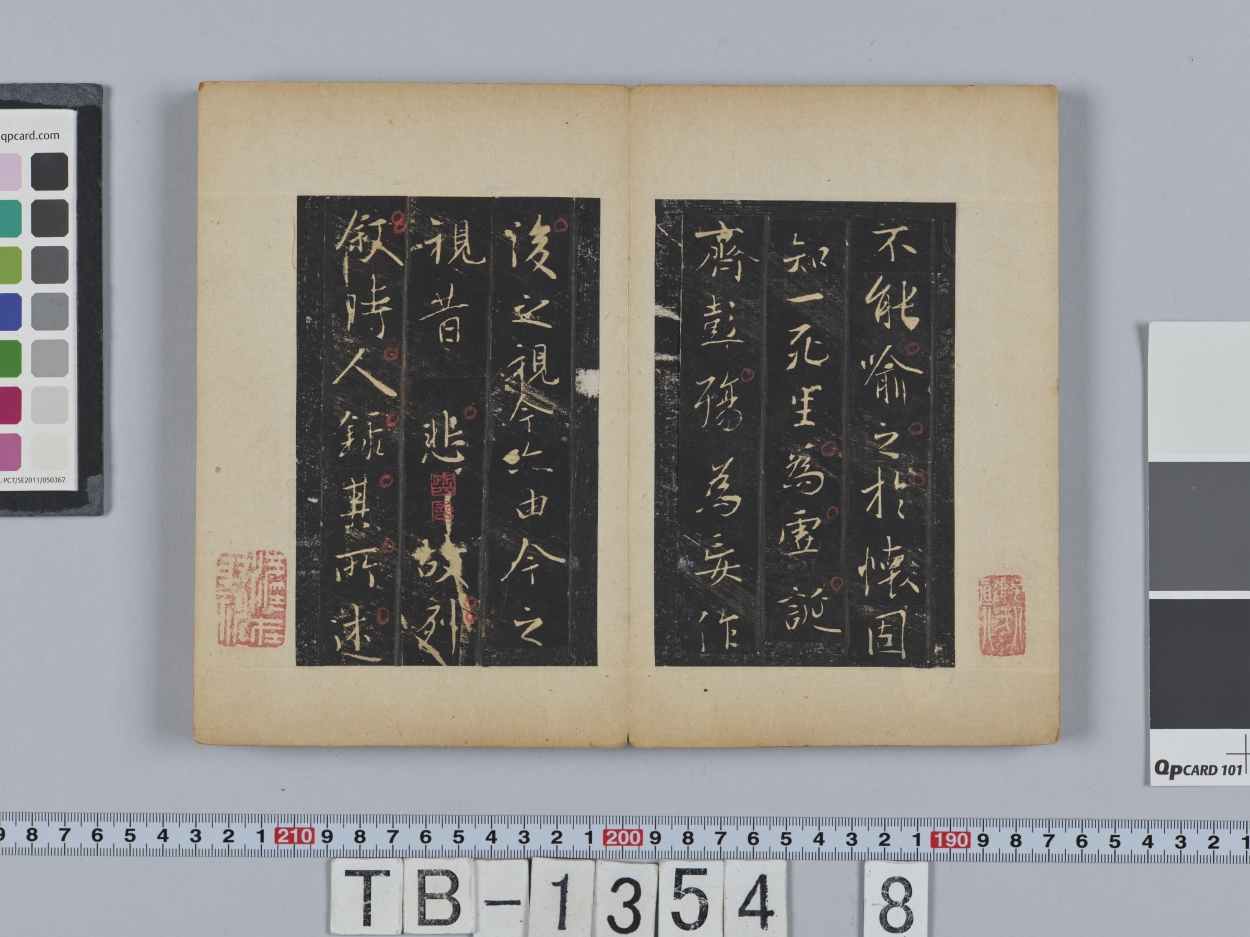 不能喻之於懷固
知一死生為虛誕
齊彭殤為妄作
後之視今亦由今之
視昔 悲 故列
叙時人錄其所述
qpcard.com
PCT/SE2011/050367
QPCARD 101
9 8 7 6 5 4 3 2 1 210 9 8 7 6 5 4 3 2 1 200 9 8 7 6 5 4 3 2 1 190 9 8 7 6 5 4 3 2 1
TB-1354 8